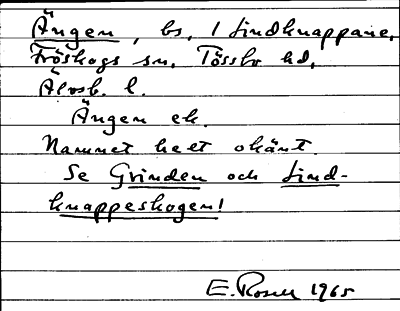 Ängen, bs, 1 Lindknappane,
Fröskogs sn. Tössbo hd,
Älvsb. l.
Ängen ek.
Namnet helt okänt.
Se Grinden och Lind-
knappeskogen!
E. Rosell 1965